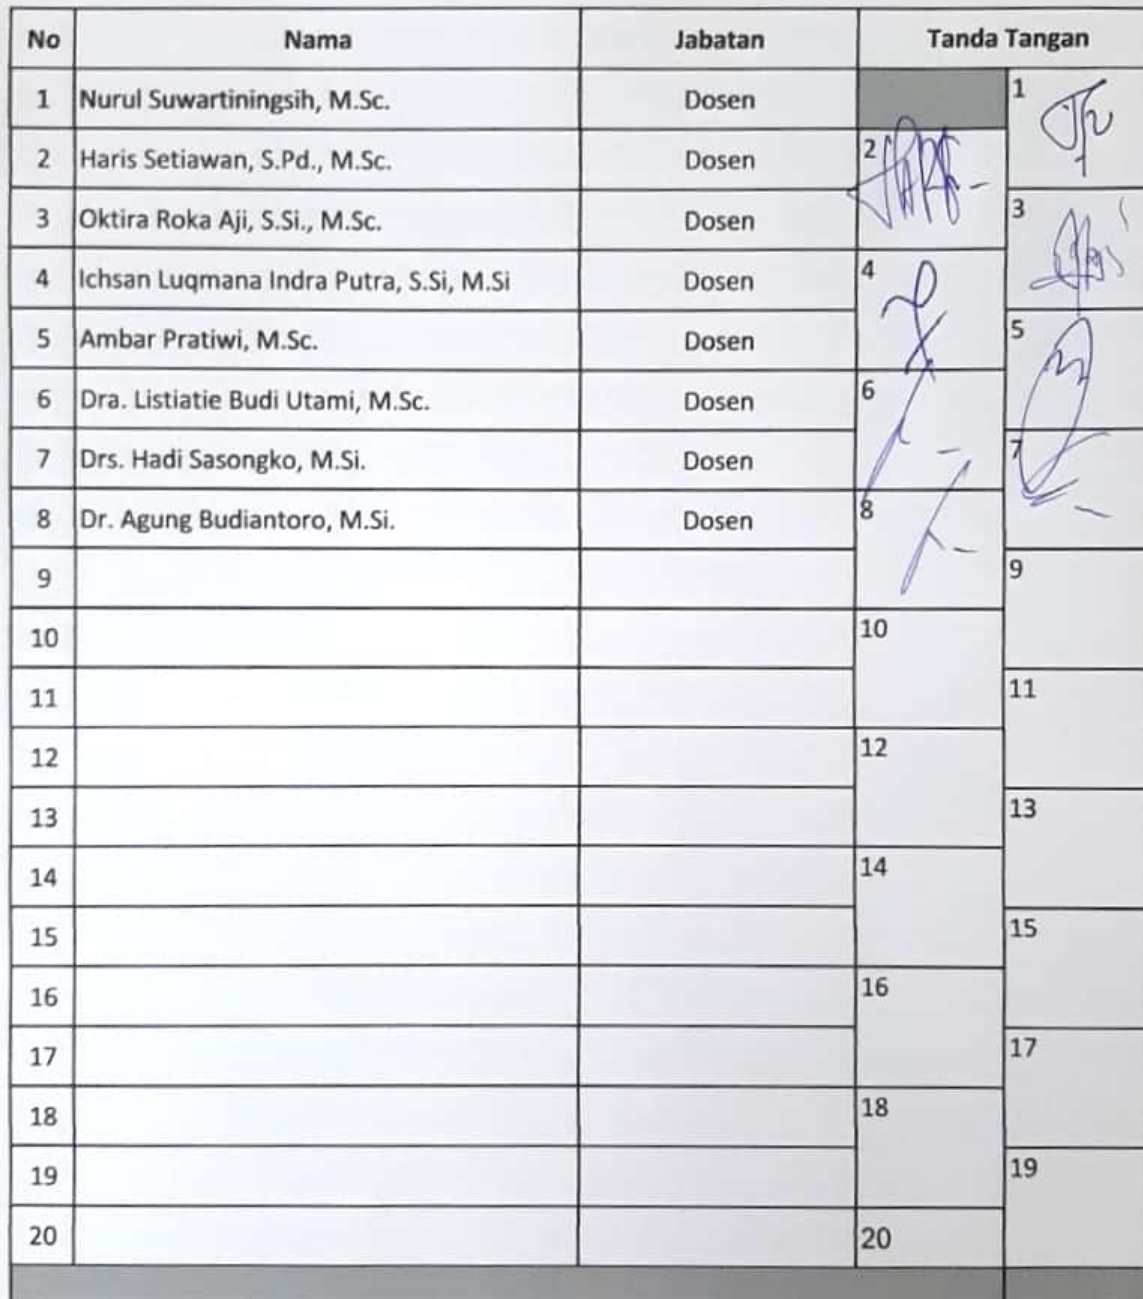 No Nama Jabatan Tanda Tangan
1 Nurul Suwartiningsih, M.Sc. Dosen 1
2 Haris Setiawan, S.Pd., M.Sc. Dosen 2
3 Oktira Roka Aji, S.Si., M.Sc. Dosen 3
4 Ichsan Luqmana Indra Putra, S.Si, M.Si Dosen 4
5 Ambar Pratiwi, M.Sc. Dosen 5
6 Dra. Listiatie Budi Utami, M.Sc. Dosen 6
7 Drs. Hadi Sasongko, M.Si. Dosen 7
8 Dr. Agung Budiantoro, M.Si. Dosen 8
9 9
10 10
11 11
12 12
13 13
14 14
15 15
16 16
17 17
18 18
19 19
20 20